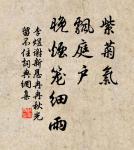 紫菊氣
飄庭戶
晚煙籠細雨
李煜謝新恩冉冉秋光
留不住詞典網集